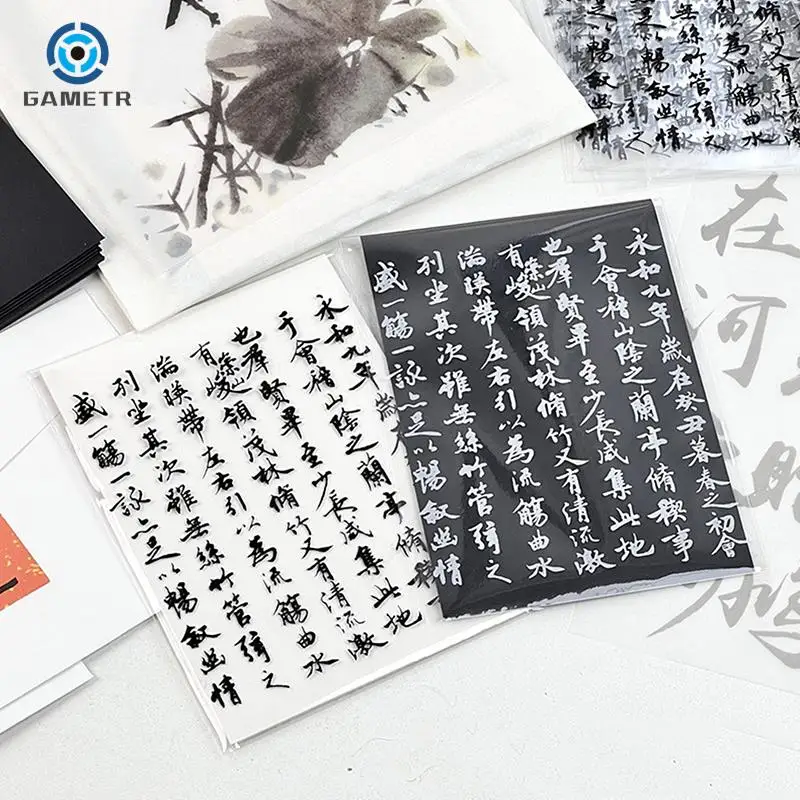 GAMETR
永和九年歲
于會稽山陰之蘭亭脩稧
也羣賢畢至少長咸集此地
有崇山峻領茂林脩竹又有清流激
湍暎帶左右引以為流觴曲水
列坐其次雖無絲竹管弦之
盛一觴一詠亦足以暢敘幽情
永和九年歲在癸丑暮春之初會
于會稽山陰之蘭亭脩稧事
也羣賢畢至少長咸集此地
有崇山峻領茂林脩竹又有清流激
湍暎帶左右引以為流觴曲水
列坐其次雖無絲竹管弦之
盛一觴一詠亦足以暢敘幽情
為流觴曲水
絲竹管弦之
暢敘幽情
在河